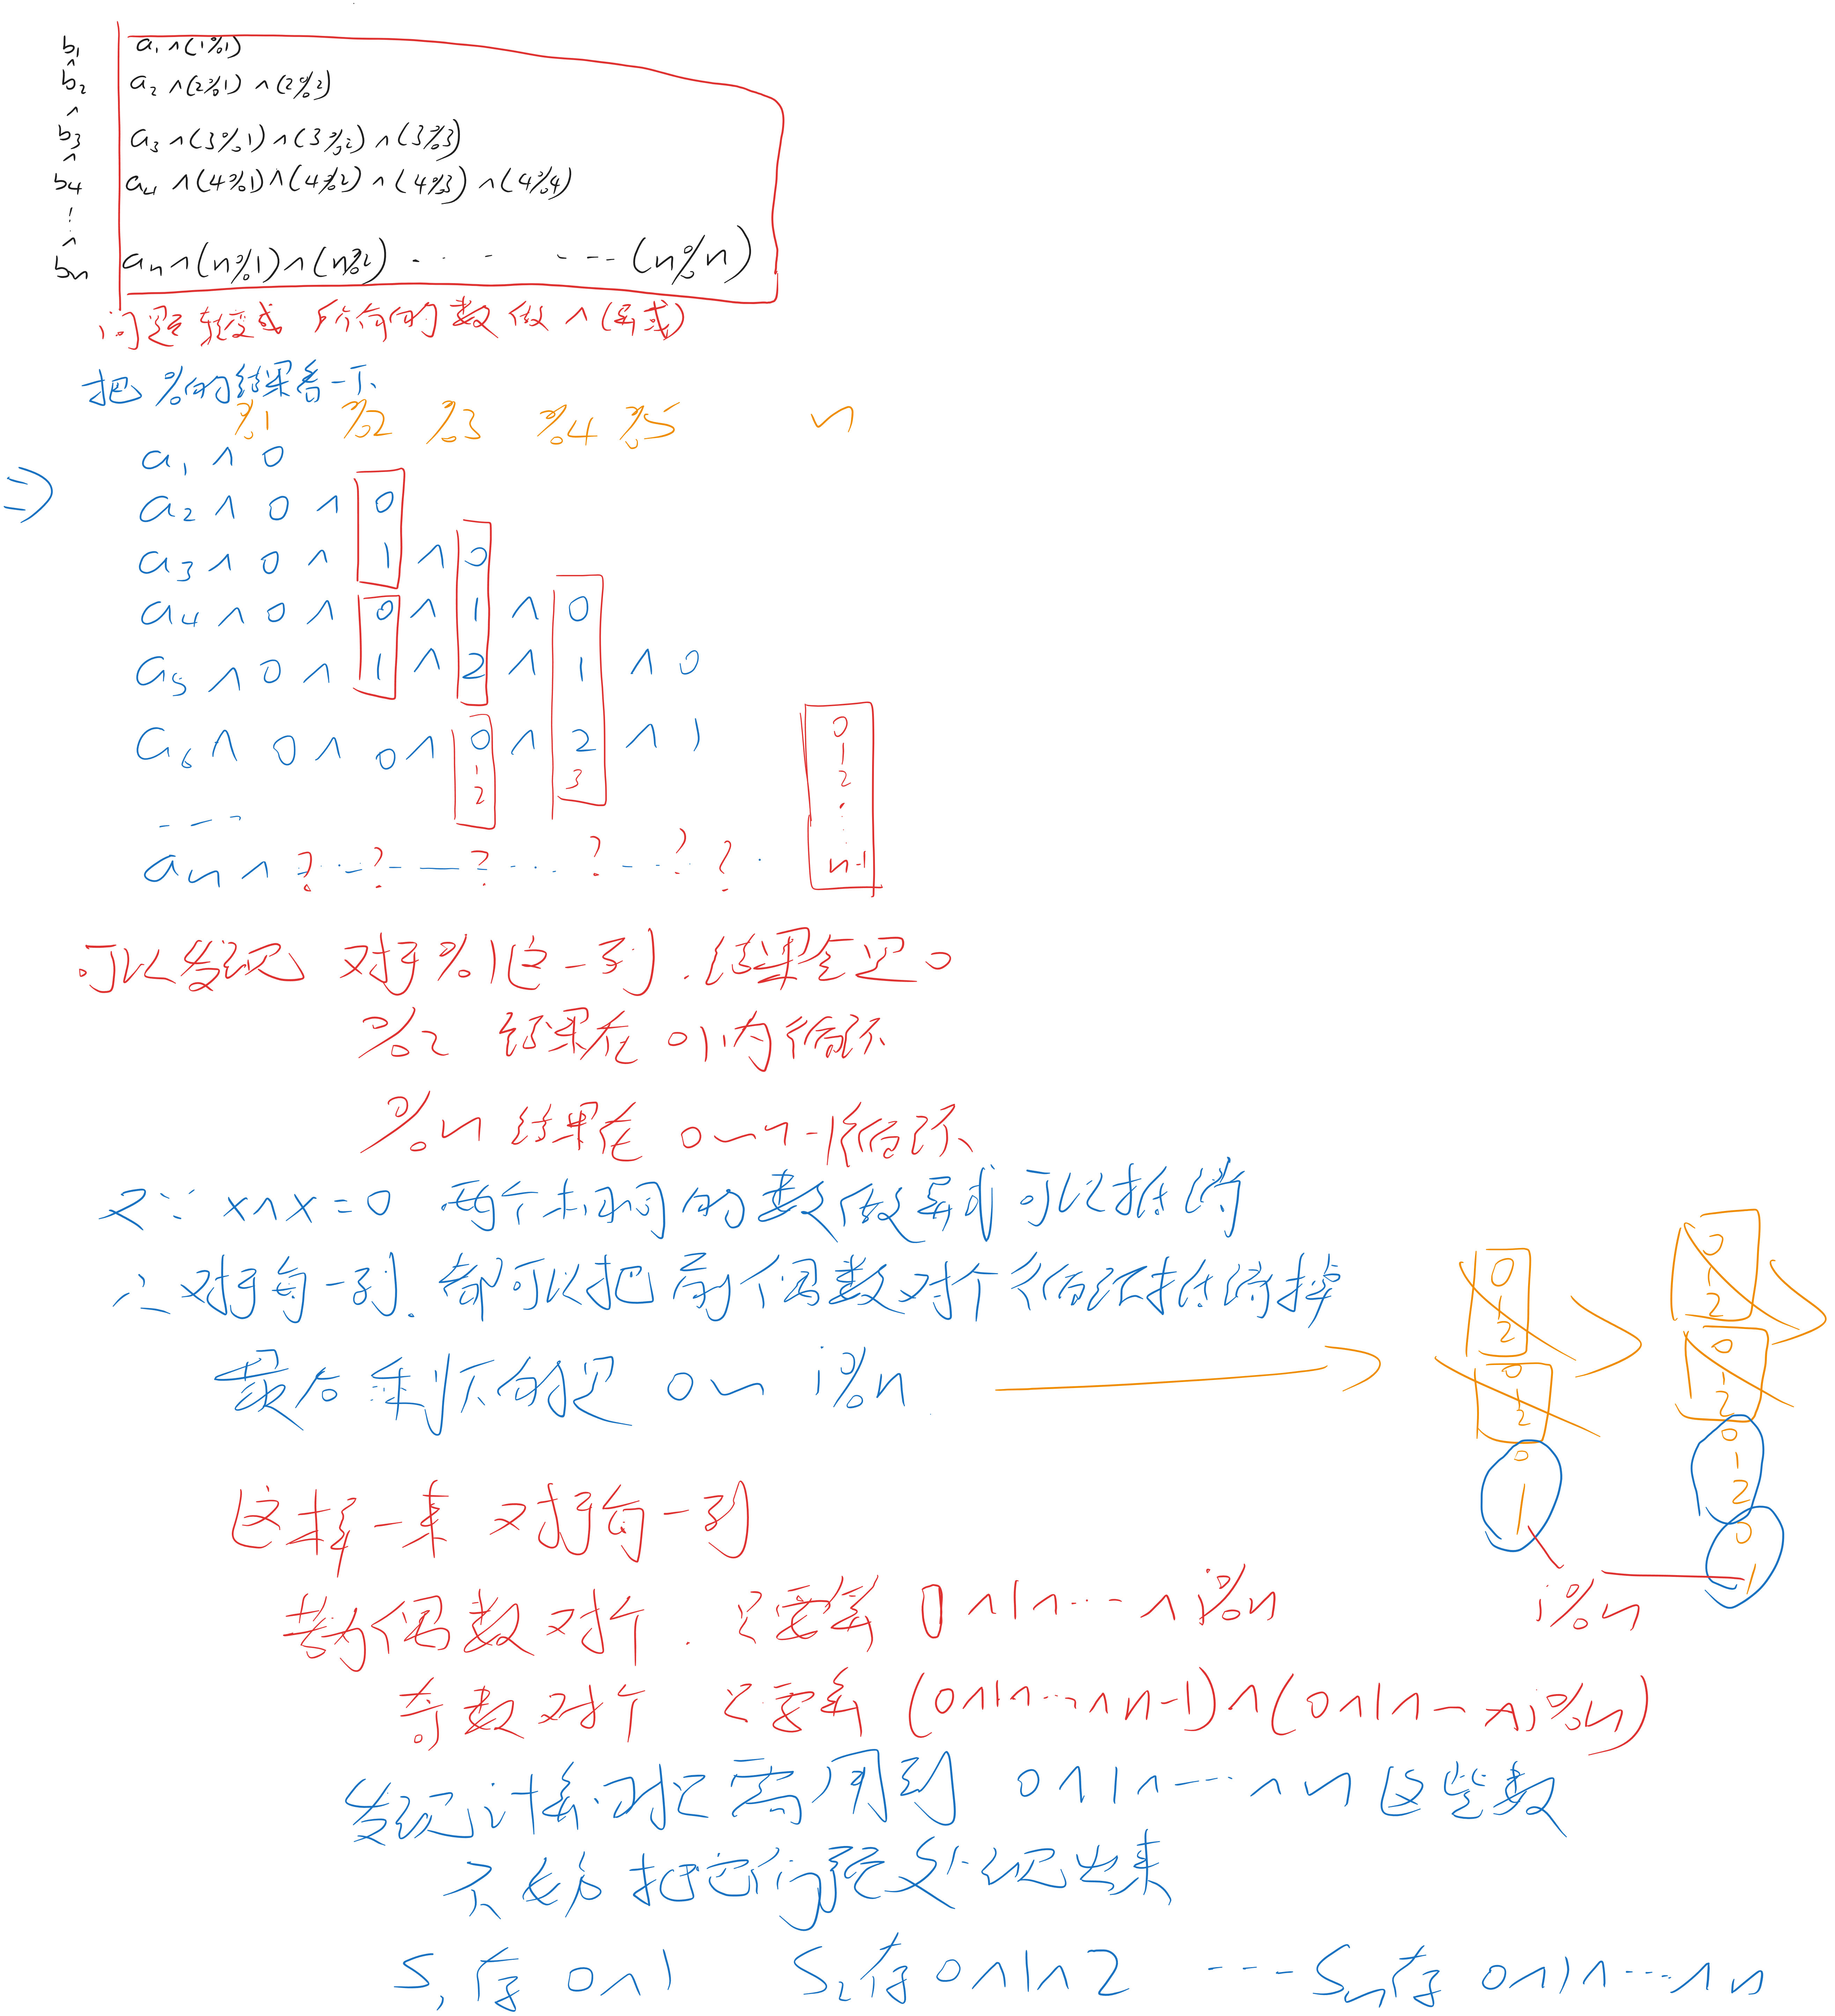 b₁ a₁ ^ (1%1)
^
b₂ a₂ ^ (2%1) ^ (2%2)
^
b₃ a₃ ^ (3%1) ^ (3%2) ^ (3%3)
^
b₄ a₄ ^ (4%1) ^ (4%2) ^ (4%3) ^ (4%4)
⋮
^
bₙ aₙ ^ (n%1) ^ (n%2) - - - - - - (n%n)
问题转换成 所有的数做 ^ (异或)
把 %的结果看一下
%1 %2 %3 %4 %5 n
a₁ ^ 0
⇒ a₂ ^ 0 ^ 0
a₃ ^ 0 ^ 1 ^ 0
a₄ ^ 0 ^ 0 ^ 1 ^ 0
a₅ ^ 0 ^ 1 ^ 2 ^ 1 ^ 0
a₆ ^ 0 ^ 0 ^ 0 ^ 2 ^ 1
1
2
3
0
1
2
.
.
n-1
- - -
aₙ ^ ? - ? - - ? ... ? - - ? ? .
可以发现 对于%1这一列.结果全是0
%2 结果在 01内循环
%n 结果在 0~n-1循环
又∵ x^x=0 每个相同的数做异或可以抵消
∴对于每一列.都可以把有偶数对个循环抵消掉
最后剩下的是 0~ i%n
0
1
2
0
1
2
0
1
0
1
2
0
1
2
0
1
2
0
1
i%n
这样一来 对于每一列
若有偶数对个. 只要看 0^1^...^i%n
奇数对个 只要看 (0^1^...^n-1)^(0^1^--^i%n)
发现计算时只需用到 0^1^----^n 这些数
只能把它们预处理出来
S₁存 0^1 S₂存 0^1^2 ---- Sₙ存 0^1^----^n